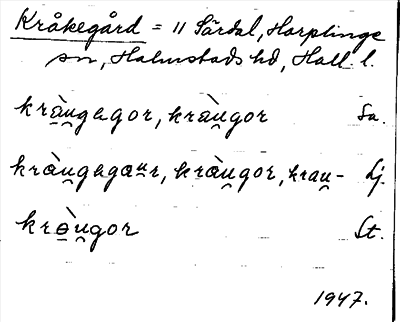 Kråkegård = 11 Särdal, Harplinge
sn, Halmstads hd, Hall. l.
kràu̯gagor, kràu̯gor Sa.
kràu̯gagau̯r, kràu̯gor, krau̯- Lj.
krɵ̀u̯gor St.
1947.